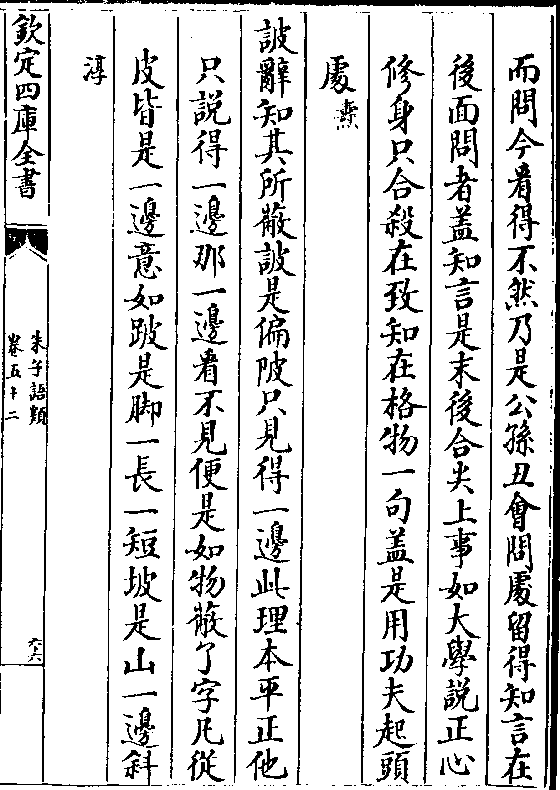 而問今看得不然乃是公孫丑會問處留得知言在
後面問者盖知言是末後合尖上事如大學說正心
修身只合殺在致知在格物一句盖是用功夫起頭
處燾
詖辭知其所蔽詖是偏陂只見得一邊此理本平正他
只說得一邊那一邊看不見便是如物蔽了字凡從
皮皆是一邊意如跛是脚一長一短坡是山一邊斜
淳
欽定四庫全書
朱子語類
卷五十二
六六